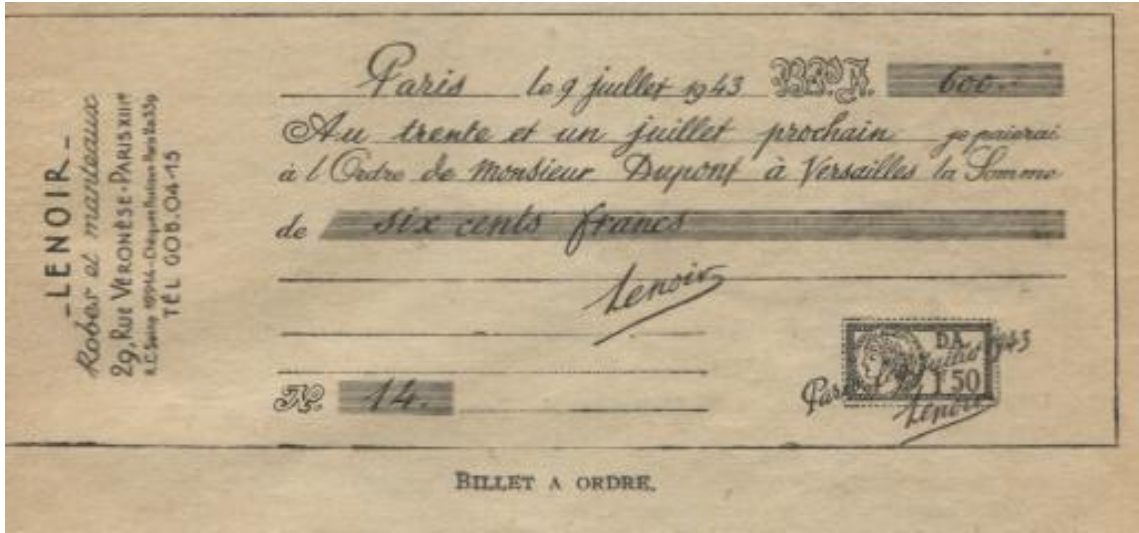 -LENOIR-
Robes et manteaux
29, RUE VERONÈSE-PARIS XIII
TÉL GOB. 04-15
Paris le 9 juillet 1943 B.P.F. 600.-
Au trente et un juillet prochain je paierai
à l'Ordre de Monsieur Dupont à Versailles la Somme
de six cents francs
Lenoir
N. 14.
DA
1 50
Paris le 9 juillet 1943
Lenoir
BILLET A ORDRE.